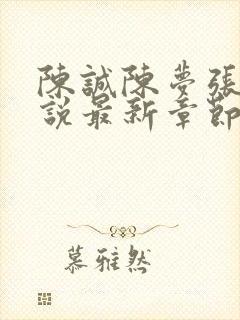 陳誠陳夢張
說最新章節
慕雅然